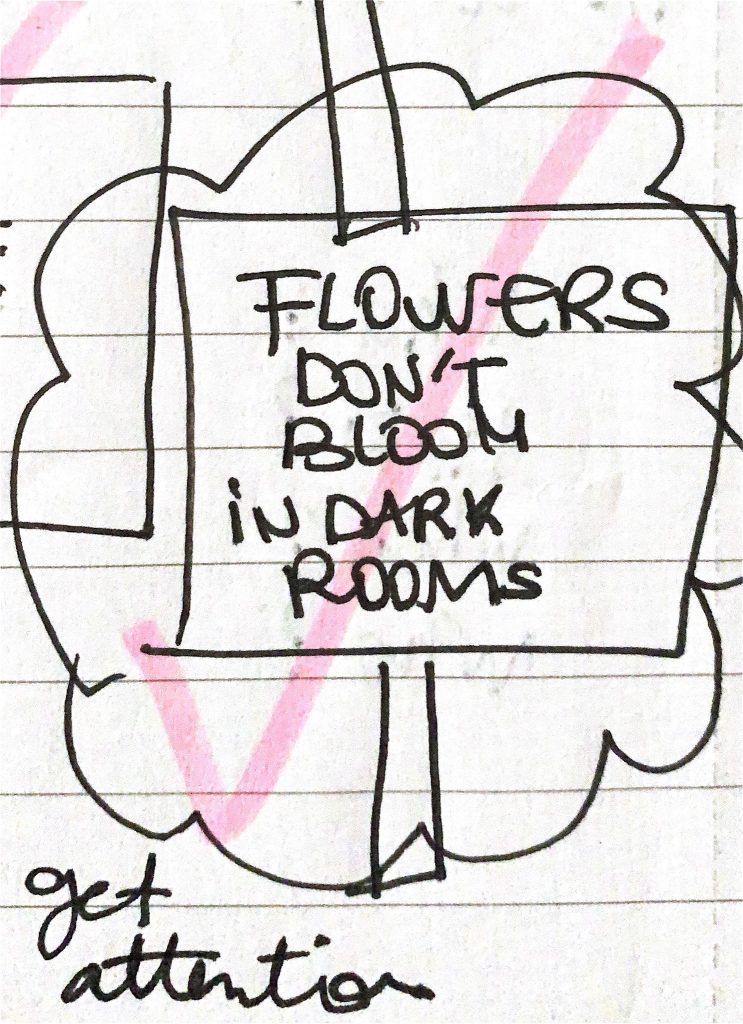 FLOWERS
DON'T
BLOOM
iN DARK
ROOMS
get
attention